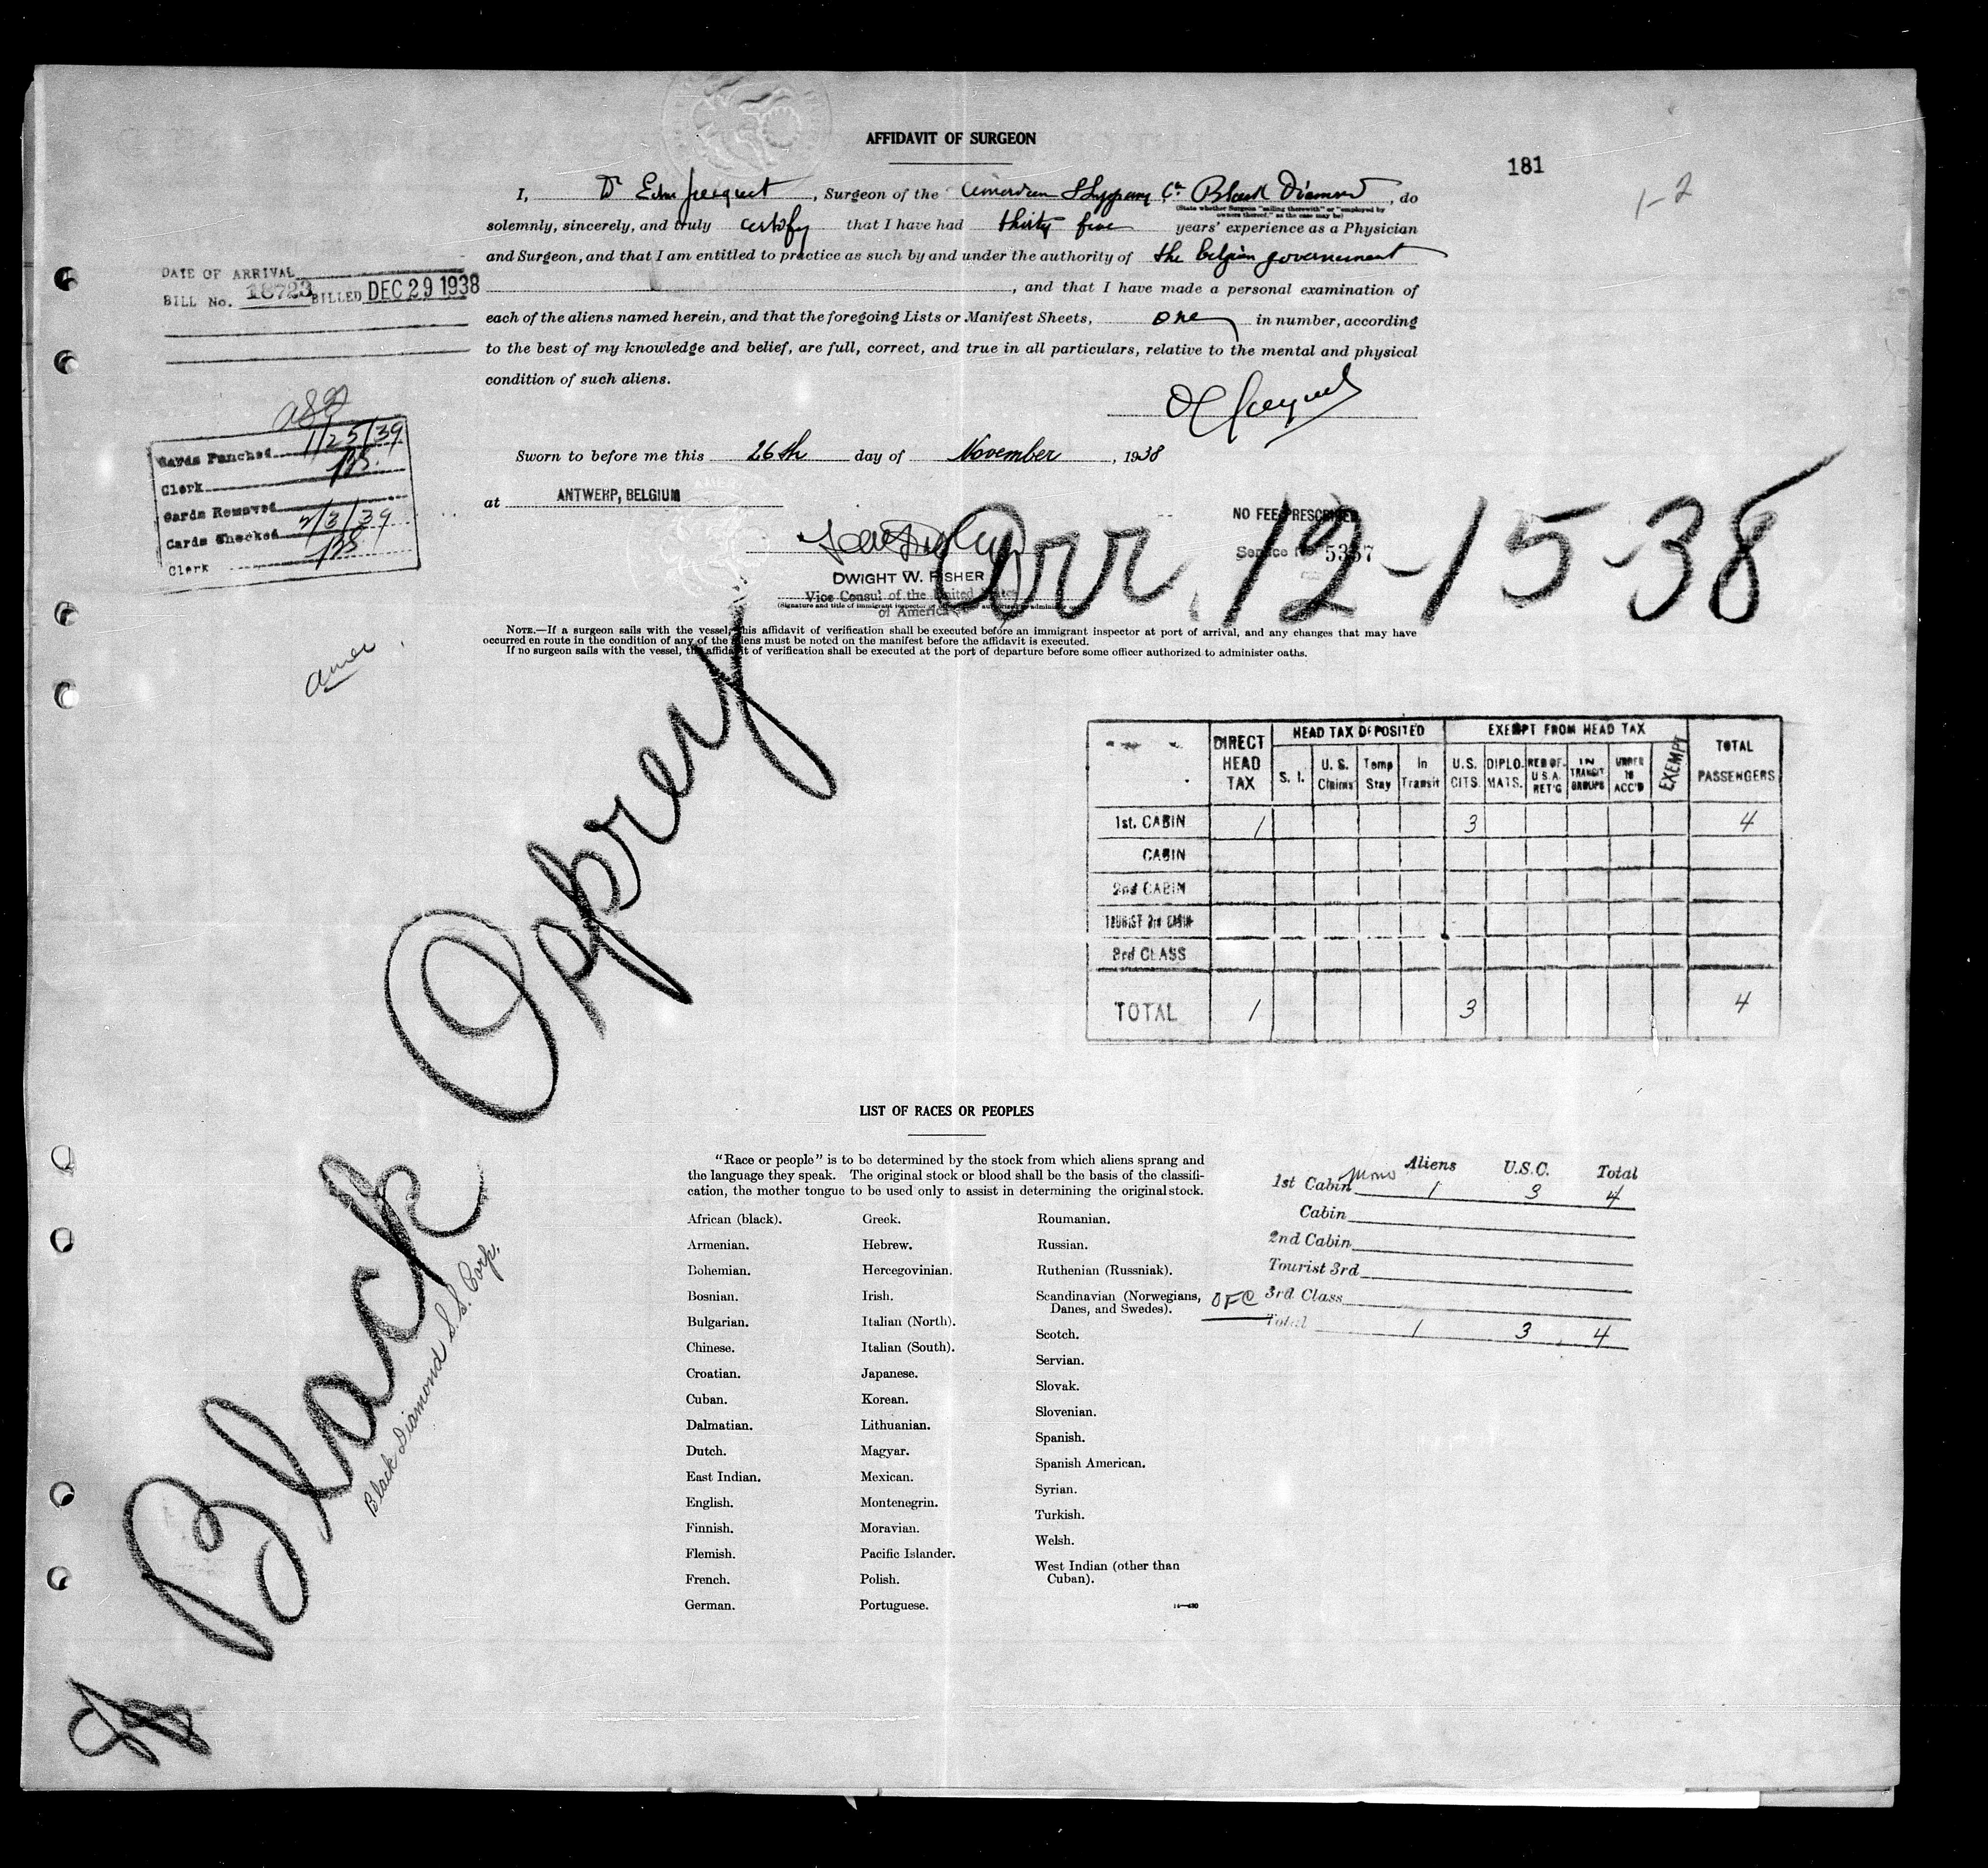 AFFIDAVIT OF SURGEON
181
1-2
I, Dr , Surgeon of the Black Diamond, do
(State whether Surgeon "sailing therewith" or "employed by owners thereof," as the case may be)
solemnly, sincerely, and truly certify that I have had thirty five years' experience as a Physician
and Surgeon, and that I am entitled to practice as such by and under the authority of the belgian government
, and that I have made a personal examination of
each of the aliens named herein, and that the foregoing Lists or Manifest Sheets, one in number, according
to the best of my knowledge and belief, are full, correct, and true in all particulars, relative to the mental and physical
condition of such aliens.
DATE OF ARRIVAL
BILL No. 18723 BILLED DEC 29 1938
Cards Punched 1/25/39
Clerk
Cards Removed
Cards Checked 2/3/39
Clerk
Sworn to before me this 26th day of November, 1938
at ANTWERP, BELGIUM
NO FEE PRESCRIBED
Service No 5357
DWIGHT W. FISHER
Vice Consul of the United States
of America
Arr. 12-15-38
NOTE.—If a surgeon sails with the vessel, this affidavit of verification shall be executed before an immigrant inspector at port of arrival, and any changes that may have
occurred en route in the condition of any of the aliens must be noted on the manifest before the affidavit is executed.
If no surgeon sails with the vessel, the affidavit of verification shall be executed at the port of departure before some officer authorized to administer oaths.
amer
Black Osprey
Black Diamond S.S. Corp.
DIRECT HEAD TAX
HEAD TAX DEPOSITED
EXEMPT FROM HEAD TAX
TOTAL PASSENGERS
S. I. U. S. Claims Temp Stay In Transit U.S. CITS. DIPLOMATS. RES OF U.S.A. RET'G IN TRANSIT GROUPS UNDER 16 ACC'D EXEMPT
1st. CABIN 1 3 4
CABIN
2nd CABIN
TOURIST 3rd CABIN
3rd CLASS
TOTAL 1 3 4
LIST OF RACES OR PEOPLES
"Race or people" is to be determined by the stock from which aliens sprang and
the language they speak. The original stock or blood shall be the basis of the classifi-
cation, the mother tongue to be used only to assist in determining the original stock.
African (black).
Armenian.
Bohemian.
Bosnian.
Bulgarian.
Chinese.
Croatian.
Cuban.
Dalmatian.
Dutch.
East Indian.
English.
Finnish.
Flemish.
French.
German.
Greek.
Hebrew.
Hercegovinian.
Irish.
Italian (North).
Italian (South).
Japanese.
Korean.
Lithuanian.
Magyar.
Mexican.
Montenegrin.
Moravian.
Pacific Islander.
Polish.
Portuguese.
Roumanian.
Russian.
Ruthenian (Russniak).
Scandinavian (Norwegians,
Danes, and Swedes).
Scotch.
Servian.
Slovak.
Slovenian.
Spanish.
Spanish American.
Syrian.
Turkish.
Welsh.
West Indian (other than
Cuban).
Aliens U.S.C. Total
1st Cabin 1 3 4
Cabin
2nd Cabin
Tourist 3rd
OFC 3rd Class
Total 1 3 4